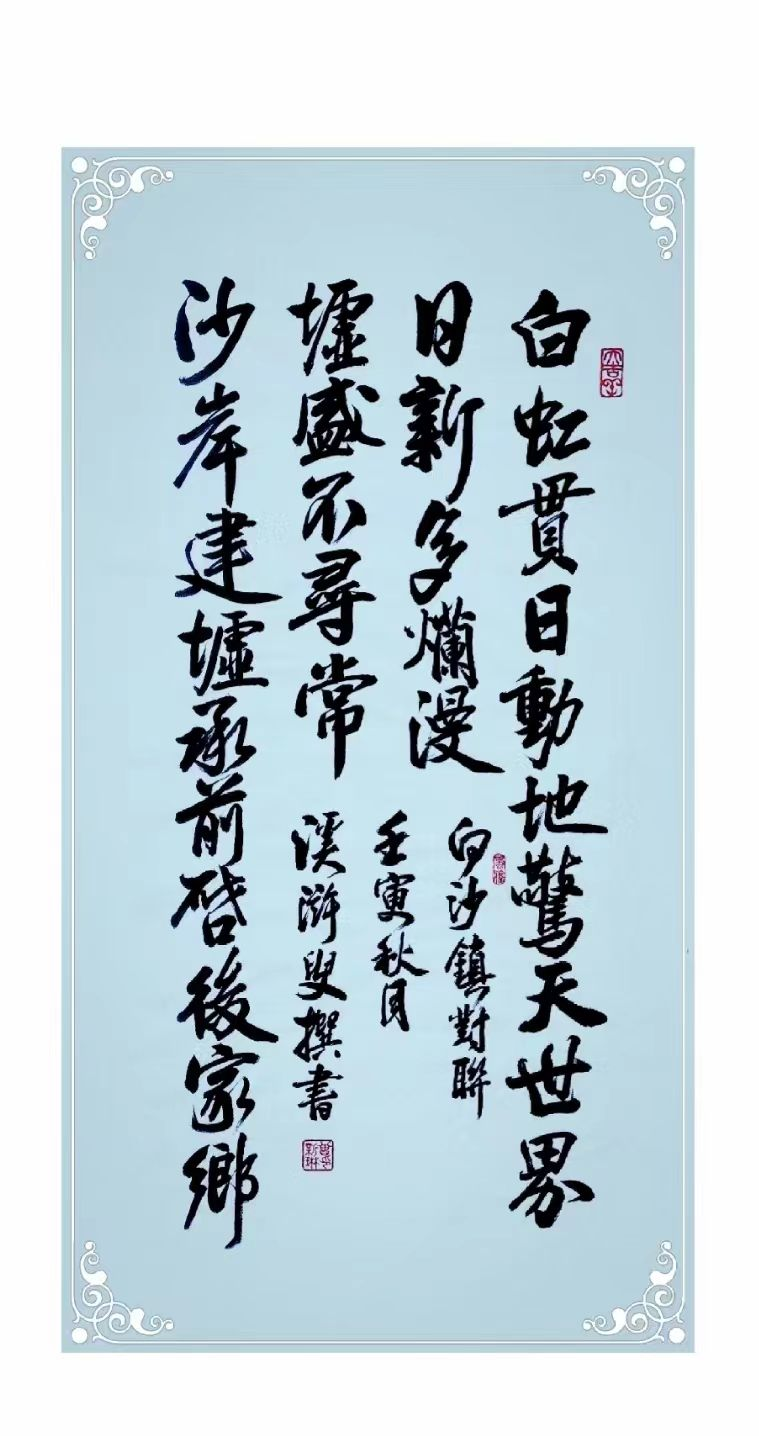 白虹貫日動地驚天世界
日新多爛漫
沙岸建墟承前啓後家鄉
墟盛不尋常
白沙鎮對聯
壬寅秋月
溪滸叟撰書